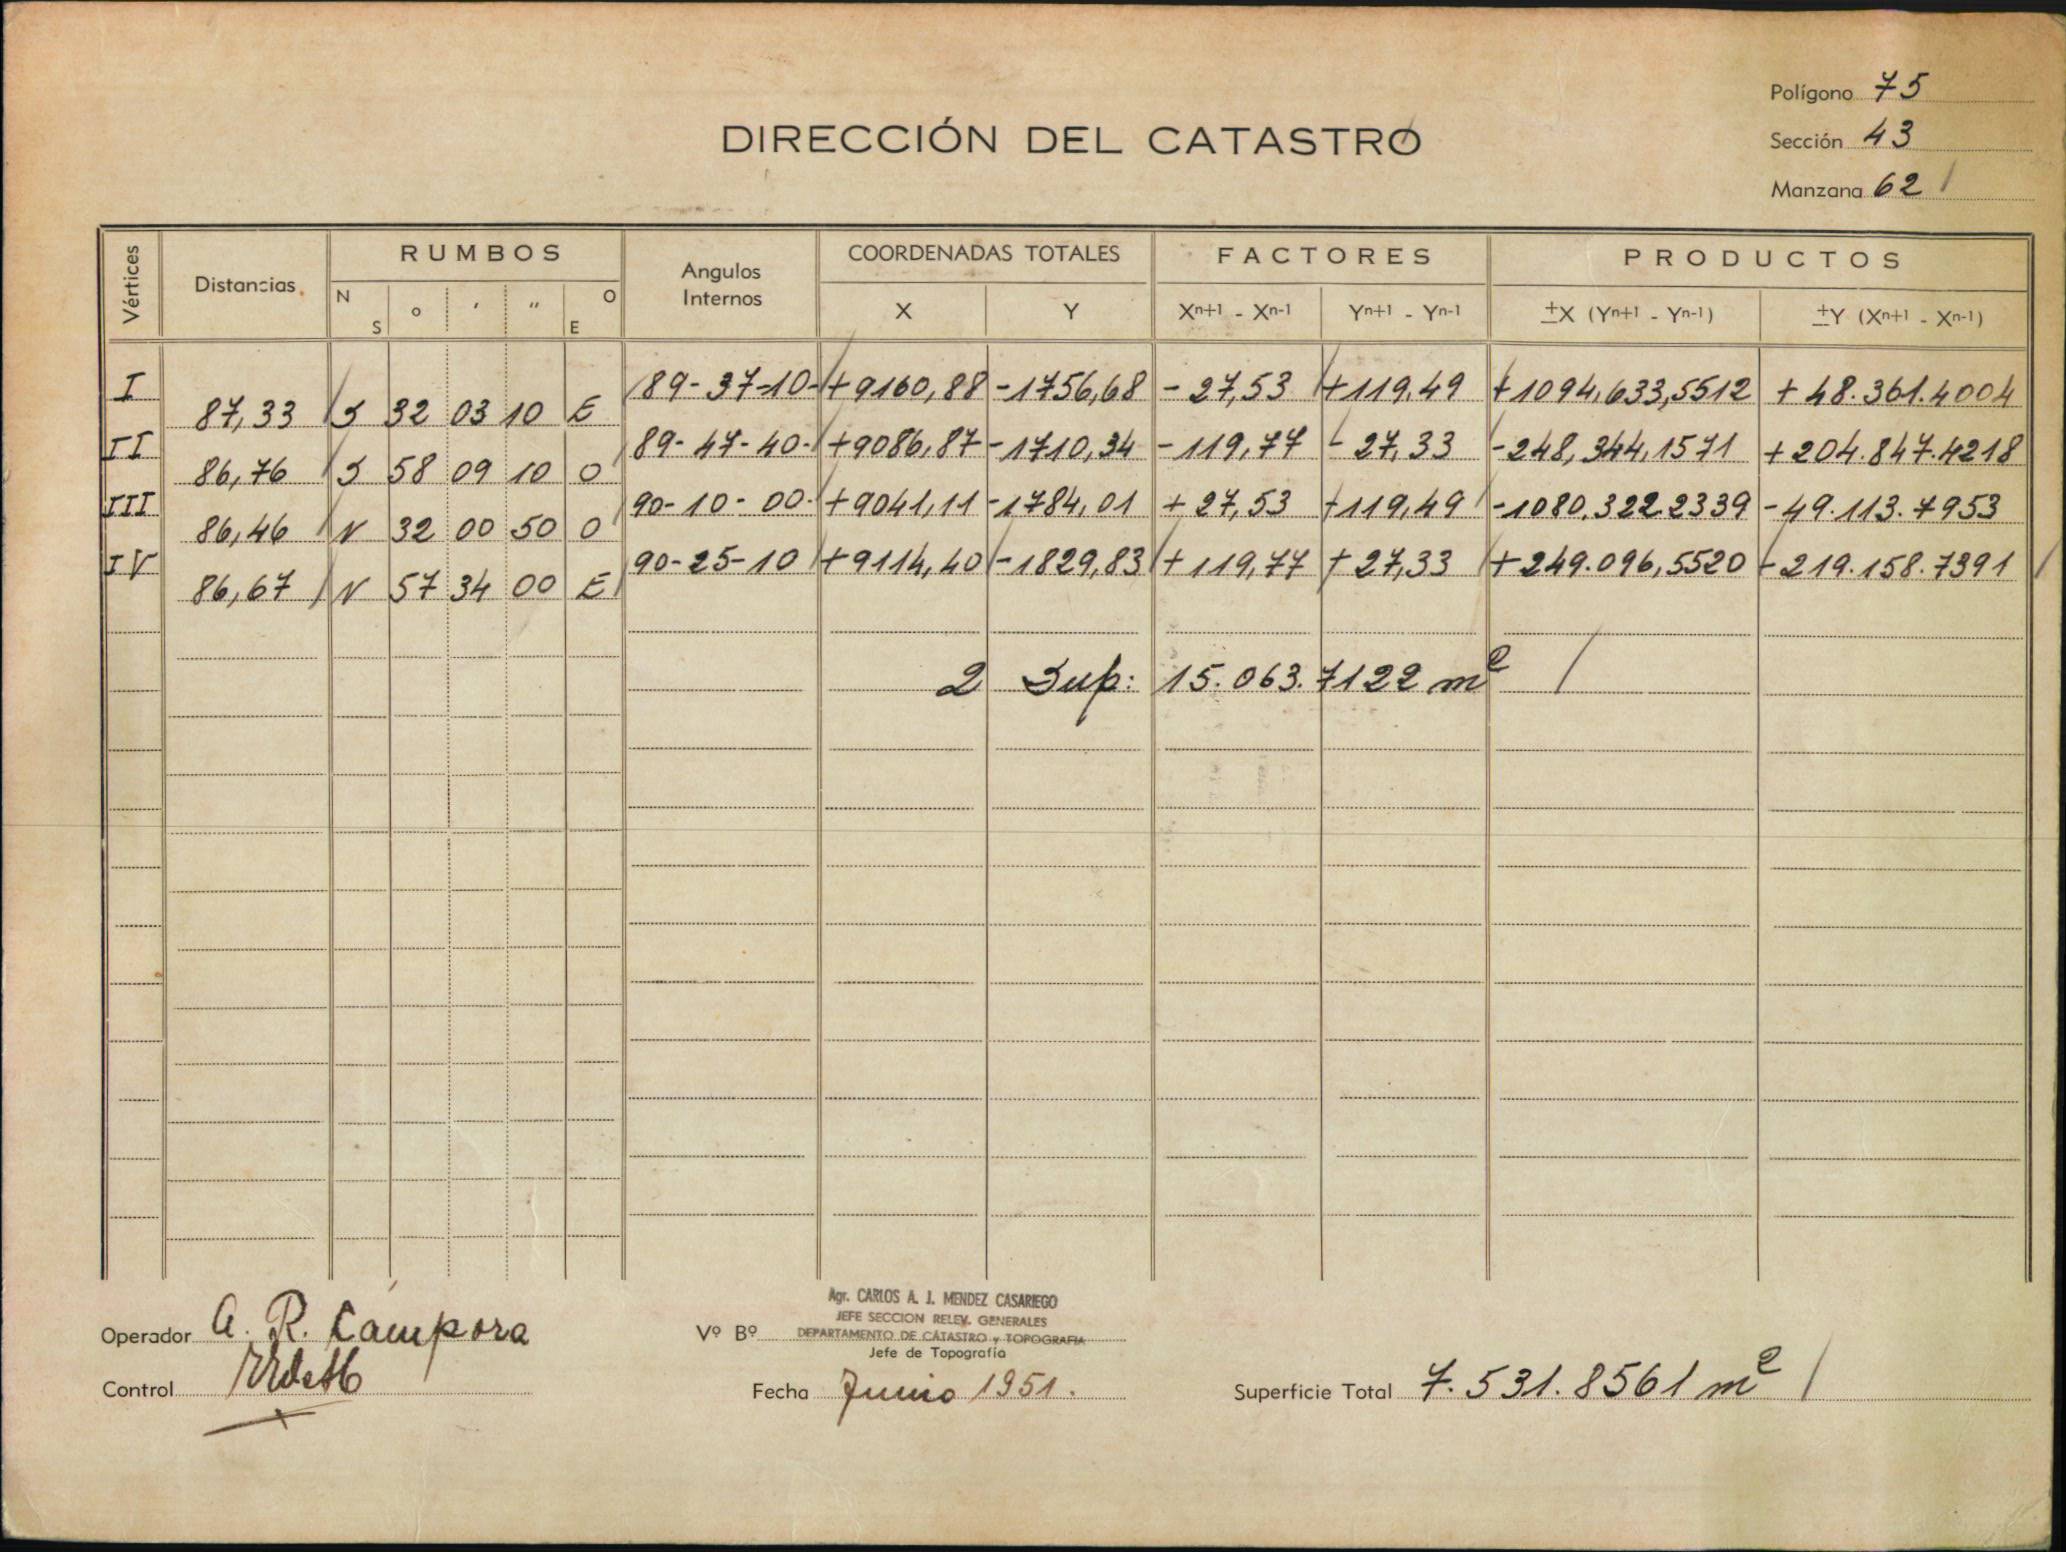 Polígono 75
DIRECCIÓN DEL CATASTRO
Sección 43
Manzana 62
Vértices Distancias RUMBOS Angulos Internos COORDENADAS TOTALES FACTORES PRODUCTOS
N S o ′ ″ O E X Y Xn+1 - Xn-1 Yn+1 - Yn-1 ±X (Yn+1 - Yn-1) ±Y (Xn+1 - Xn-1)
I 89-37-10- +9160,88 -1756,68 - 27,53 +119,49 +1094,633,5512 + 48.361.4004
87,33 S 32 03 10 E
II 89-47-40- +9086,87 -1710,34 -119,77 - 27,33 -248,344,1571 +204.847.4218
86,76 S 58 09 10 O
III 90-10-00- +9041,11 -1784,01 + 27,53 -119,49 -1080.322.2339 -49.113.7953
86,46 N 32 00 50 O
IV 90-25-10 +9114,40 -1829,83 +119,77 + 27,33 +249.096,5520 -219.158.7391
86,67 N 57 34 00 E
2 Sup: 15.063.7122 m2
Operador A. R. Cámpora
Vº Bº
Agr. CARLOS A. J. MENDEZ CASARIEGO
JEFE SECCION RELEV. GENERALES
DEPARTAMENTO DE CATASTRO y TOPOGRAFIA
Jefe de Topografía
Control
Fecha Junio 1951.
Superficie Total 7.531.8561 m2